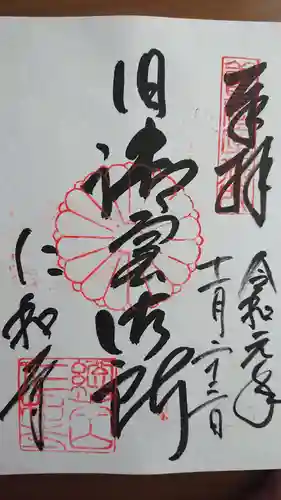 奉拝
令和元年
十一月二十二日
旧御室御所
仁和寺